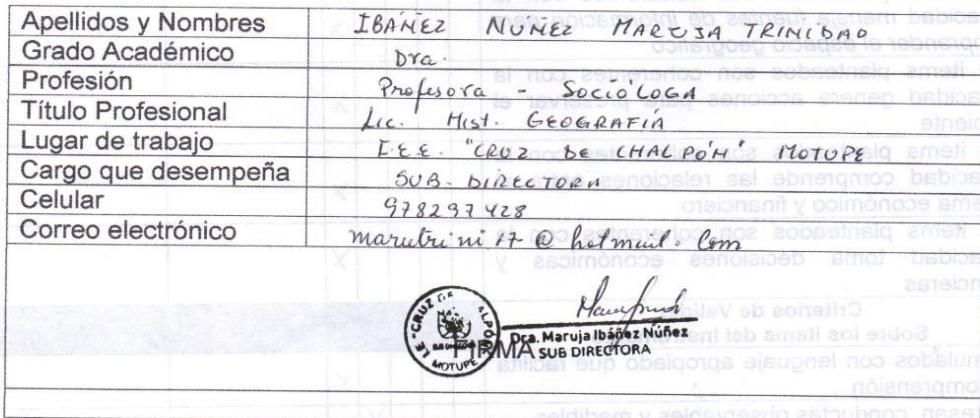 Apellidos y Nombres IBAÑEZ NUÑEZ MARUJA TRINIDAD
Grado Académico Dra.
Profesión Profesora - SOCIOLOGA
Título Profesional Lic. Hist. GEOGRAFÍA
Lugar de trabajo I.E.E. "CRUZ DE CHALPÓN" MOTUPE
Cargo que desempeña SUB-DIRECTORA
Celular 978297428
Correo electrónico marutrini 17 @ hotmail. Com
Dra. Maruja Ibáñez Núñez
FIRMA SUB DIRECTORA
MOTUPE